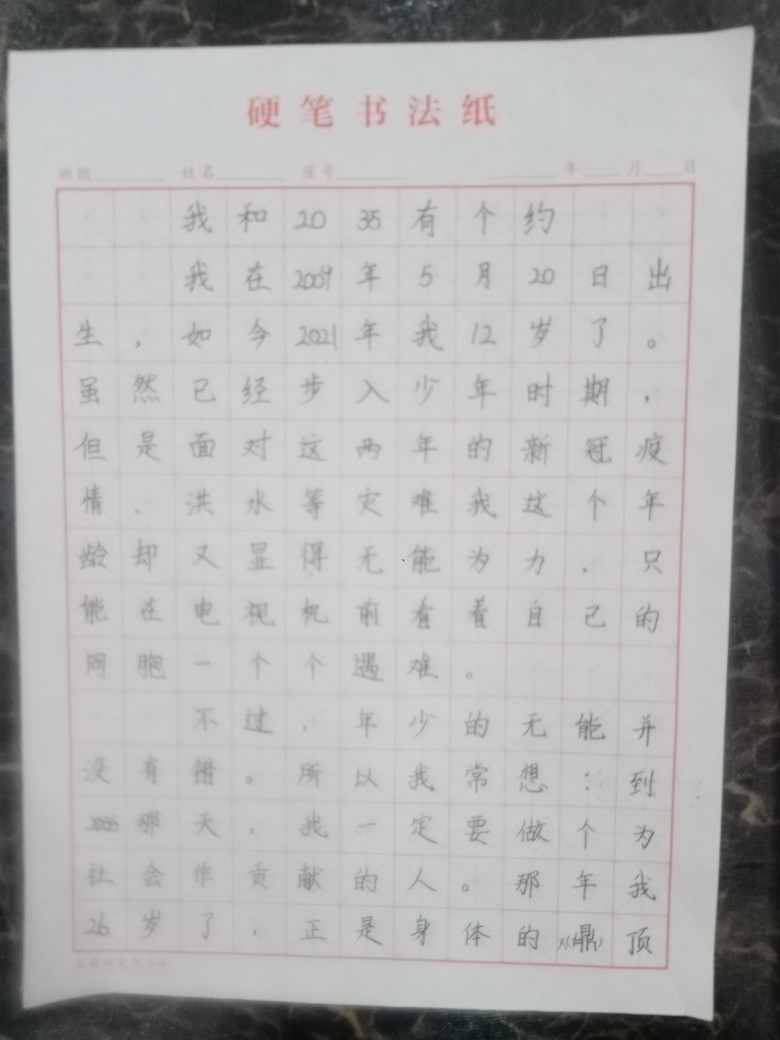 硬笔书法纸
班级 姓名 座号 年 月 日
我和2035有个约
我在2009年5月20日出
生，如今2021年我12岁了。
虽然已经步入少年时期，
但是面对这两年的新冠疫
情、洪水等灾难我这个年
龄却又显得无能为力，只
能在电视机前看着自己的
同胞一个个遇难。
不过，年少的无能并
没有错。所以我常想：到
2035那天，我一定要做个为
社会作贡献的人。那年我
26岁了，正是身体的鼎顶